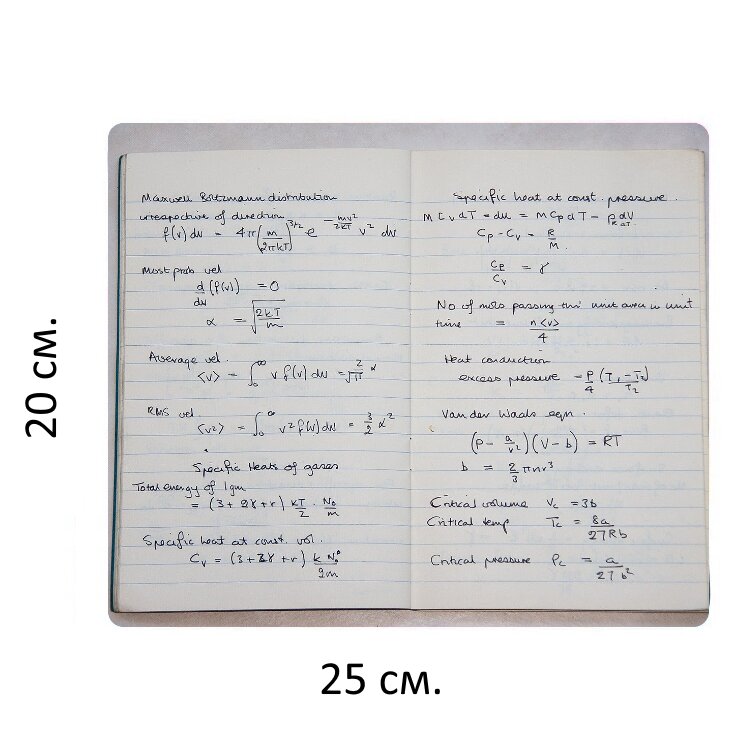 20 см.
Maxwell Boltzmann distribution
irrespective of direction
f(v) dv = 4π (m/2πkT)^3/2 e^-mv²/2kT v² dv
Most prob vel
d/dv (f(v)) = 0
α = √2kT/m
Average vel.
<v> = ∫₀^∞ v f(v) dv = 2/√π α
RMS vel.
<v²> = ∫₀^∞ v² f(v) dv = 3/2 α²
Specific Heats of gases
Total energy of 1gm
= (3 + 2γ + r) kT/2 . N₀/m
Specific heat at const. vol.
Cv = (3 + 2γ + r) k N₀/2m
Specific heat at const. pressure.
m Cv dT = du = m Cp dT - p dV/dT
Cp - Cv = R/M
Cp/Cv = γ
No of mols passing thro' unit area in unit
time = n<v>/4
Heat conduction
excess pressure - P/4 (T₁ - T₂)/T₂
Van der Waals eqn.
(P - a/v²)(V - b) = RT
b = 2/3 πnr³
Critical volume Vc = 3b
Critical temp Tc = 8a/27Rb
Critical pressure Pc = a/27b²
25 см.